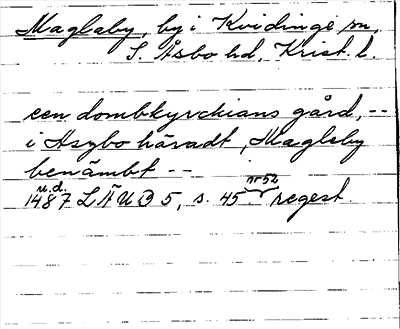 Maglaby, by i Kvidinge sn,
S. Åsbo hd, Krist. l.
een dombkyrckians gård, --
i Aszbo häradt, Magleby
benämbt --
u.d.
nr 52
1487 LÄUB 5, s. 45 regest.